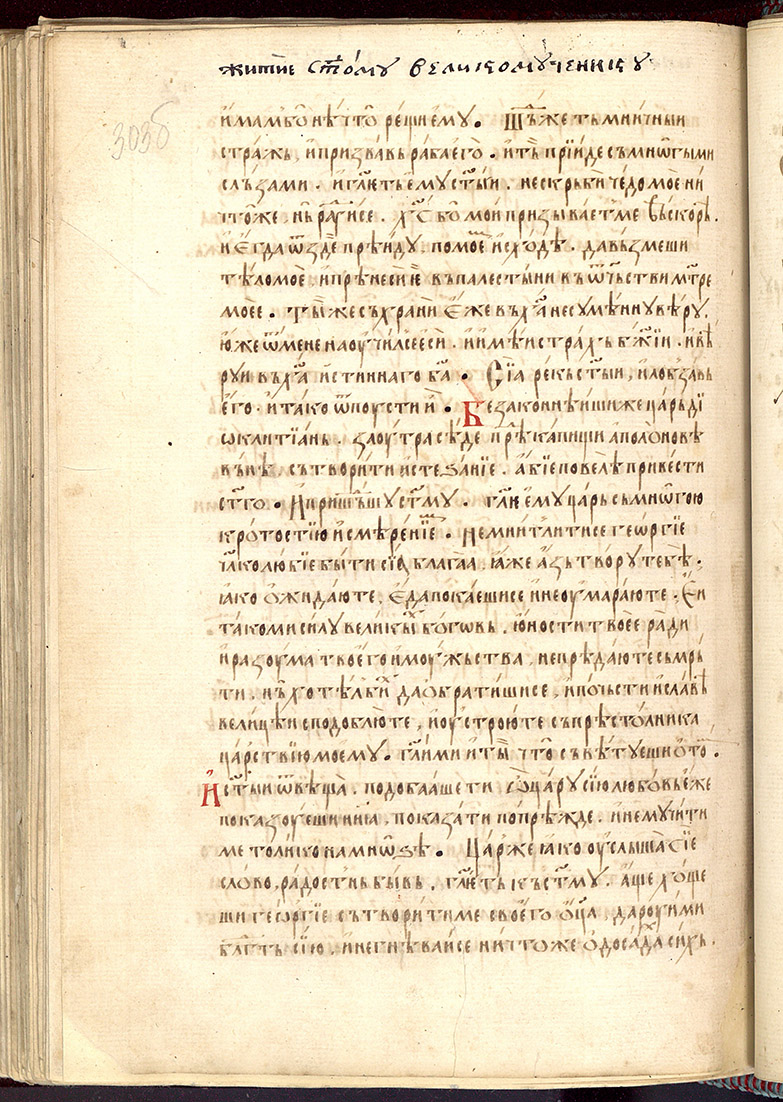 житїе ст҃ому великомученику
303б
имамбо нѣчто рещи ему. Шьже тьмничныи
стражь, и призва вь раба его. и тъ прїиде съ мнѡгыми
слъзами. и гл҃еть ему ст҃ыи. не скрьби чедо мое ни
чтоже, нь рад꙽исе. х҃с бо мои призываетме въскорѣ.
и егда ѿзде прѣиду. помоѥ исходѣ. да възмеши
тѣло мое, и прѣнеси е въ палестыни въ ѡч꙽ьстви мт҃ре
моее. ты же съхрани еже въ х҃а несумѣнну вѣру,
юже ѿ мене научилсе еси. и имѣи страхь бж҃їи. и вѣ
руи въ х҃а истиннаго б҃а. Сїа рекь ст҃ыи, и лобзавь
его. и тако ѿпусти и. Безаконнѣишиже царь дї
ѡклитїань. заоутра седе прѣ капищи аполонове
вънѣ. сътворити истезанїе. абїе повелѣ привести
ст҃го. И пришьшу ст҃му. гл҃е ему царь сь мнѡгою
кротостїю и смѣренїе. не мнит ли ти се геѡргїе
ꙗко любїе быти сїа благаа. ꙗже азь твору тебѣ.
ꙗко ожидаюте. еда покаешисе и не оумараюте. Еи
тако ми силу великыⷯ богѡвь. юности твоее ради
и разоума твоего и моужьства. не прѣдаюте сьмрь
ти, нь хотѣлбиⷯ да обратишисе, и почьсти и славѣ
велицѣи сподоблюте, и оустроюте съпрѣстолника
царствїю моему. гл҃и ми и ты что съвѣтуеши о то.
И ст҃ыи ѿвѣща. подобааше ти ѡ цару сїю любовь еже
показоуеши ниꙗ, показати попрѣжде. и не мучити
ме толико на мнѡзѣ. Царже ꙗко оуслыша сїе
слово, радостнь бывь. гл҃еть къ ст҃му. аще хоще
ши геѡргїе сътворити ме своего ѡц҃а. дароуи ми
блгⷣть сїю. и не гнѣваисе ничтоже о досадаⷯ сихь.